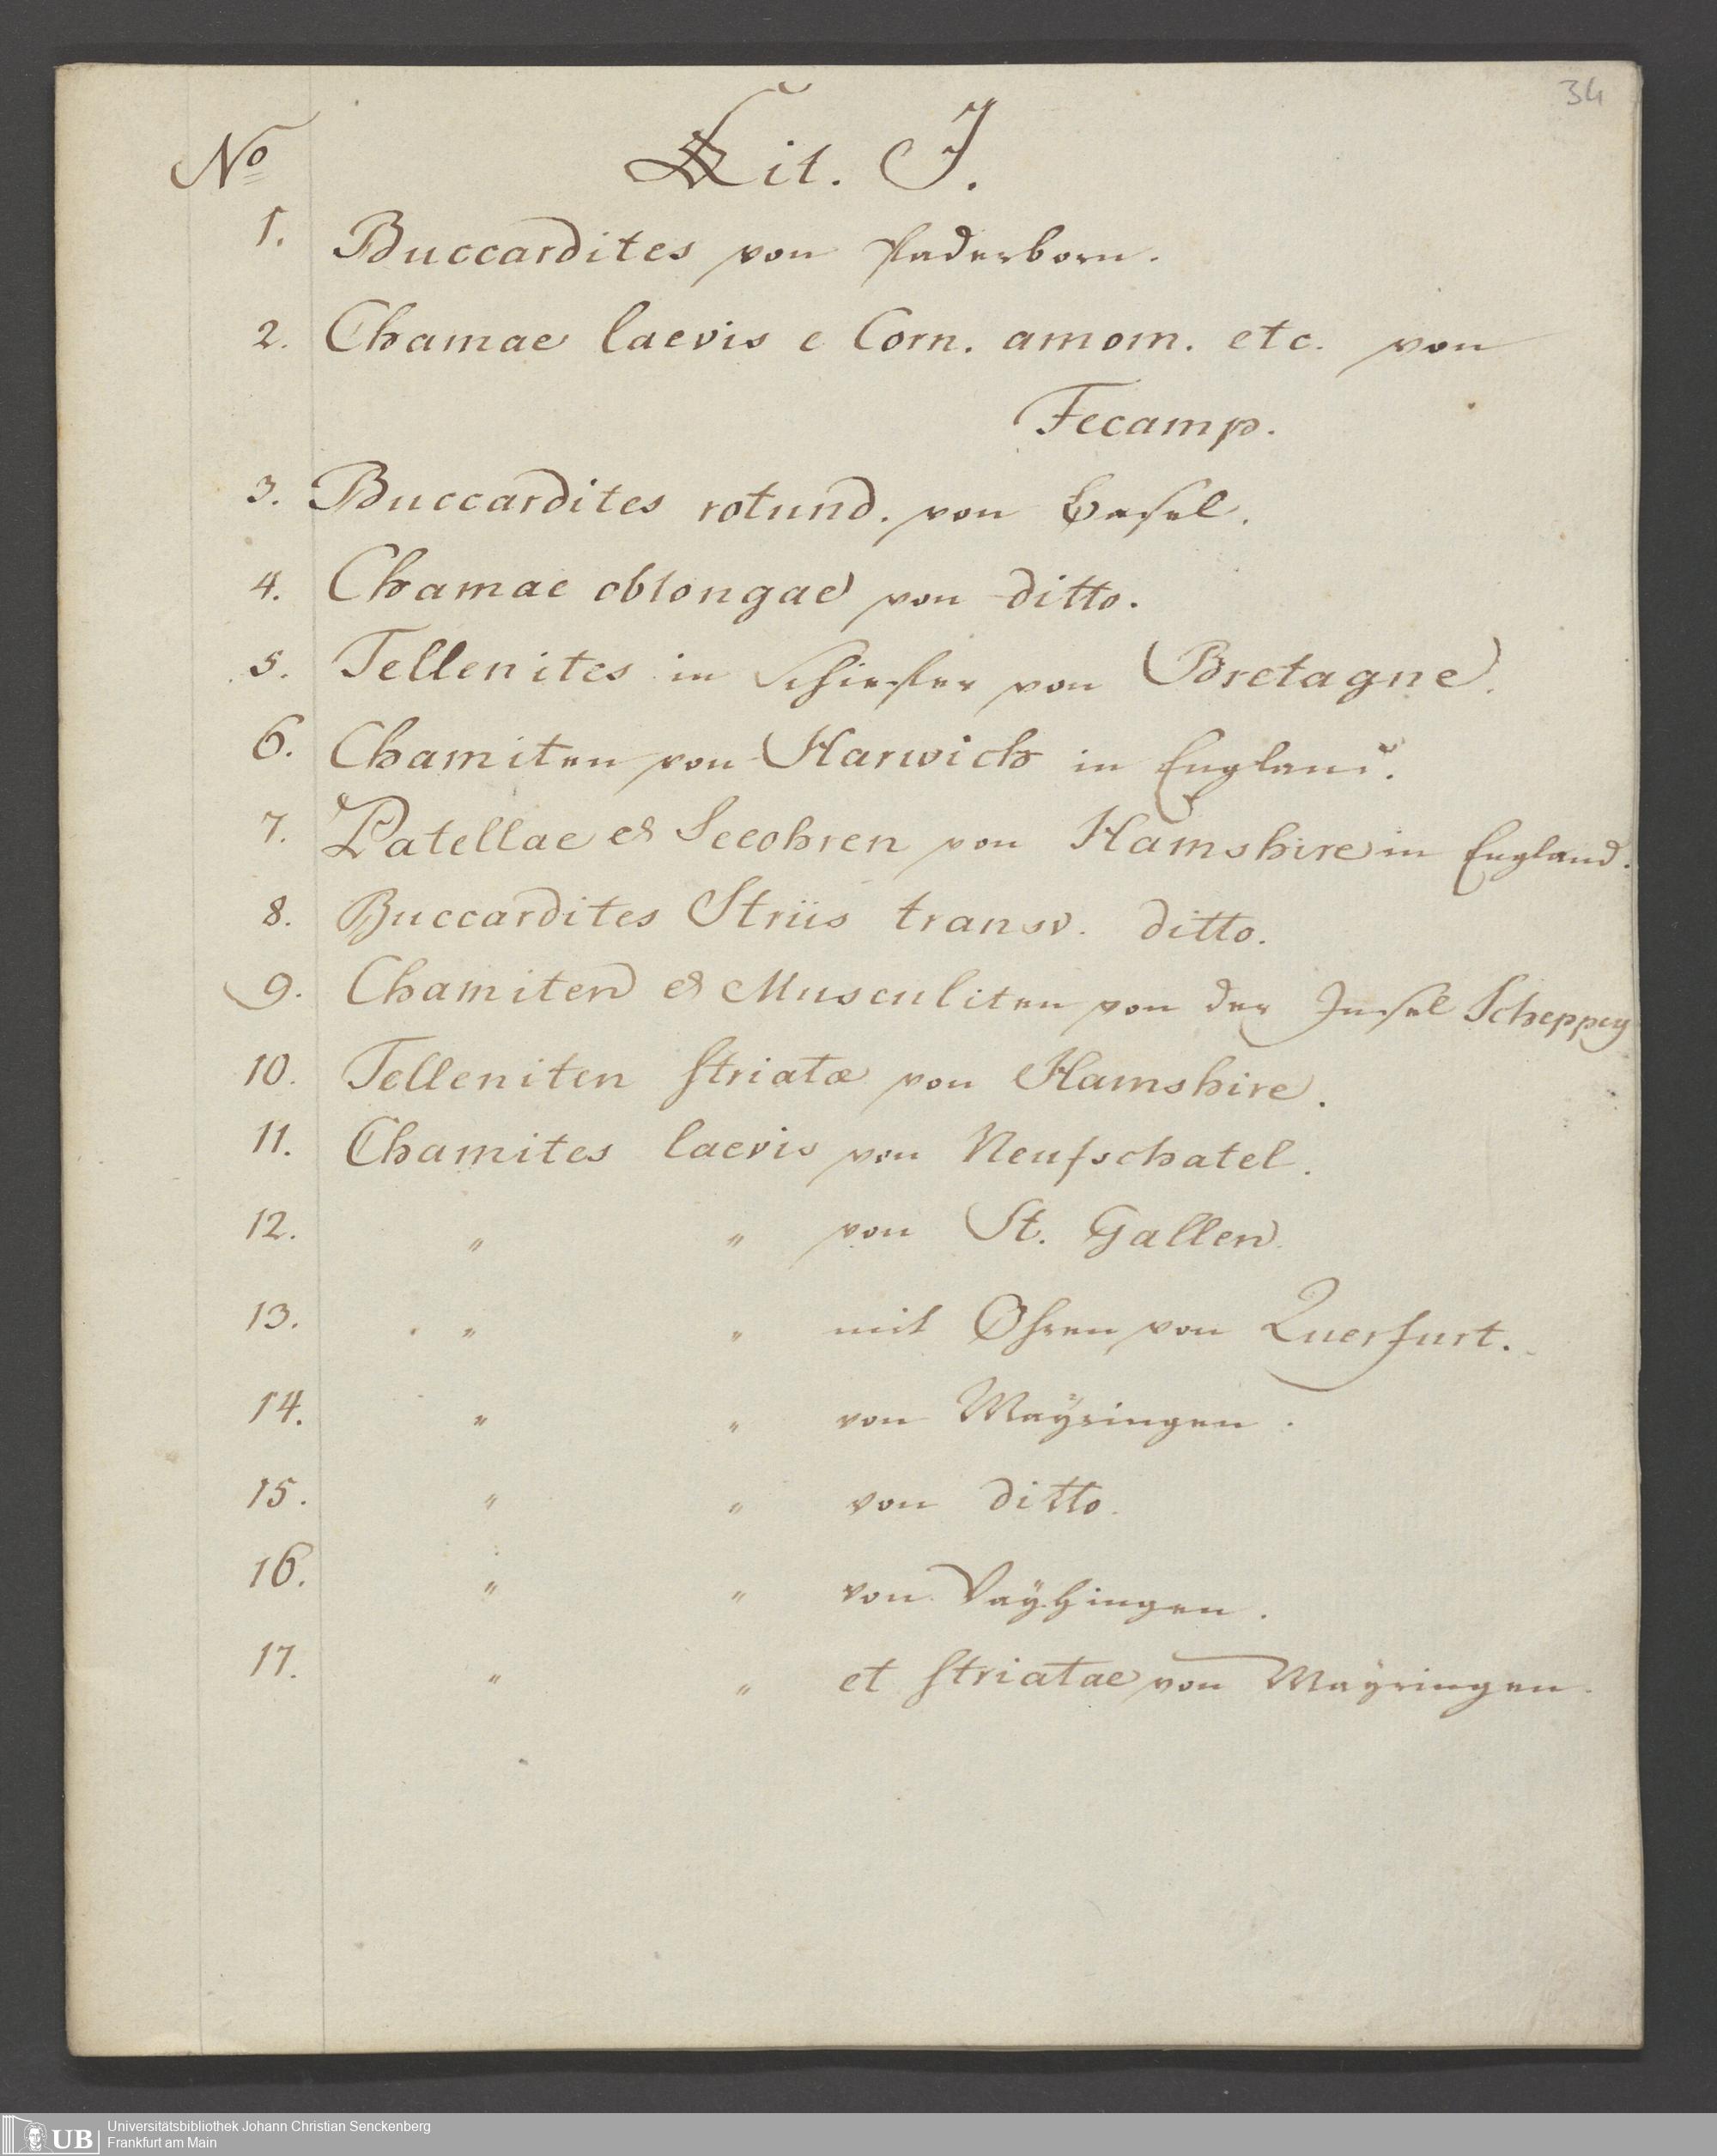 34
No Lit. J.
1. Buccardites von Paderborn.
2. Chamae laevis e Corn. amom. etc. von
Fecamp.
3. Buccardites rotund. von Basel.
4. Chamae oblongae von ditto.
5. Tellenites in Schiefer von Bretagne.
6. Chamiten von Harwich in England.
7. Patellae et Seeohren von Hamshire in England.
8. Buccardites Striis transv. ditto.
9. Chamiten et Musculiten von der Insel Scheppey
10. Telleniten striatæ von Hamshire.
11. Chamites laevis von Neufschatel.
12. " " von St. Gallen.
13. " " mit Ohren von Querfurt.
14. " " von Maÿringen.
15. " " von ditto.
16. " " von Vaÿhingen.
17. " " et striatae von Maÿringen.
UB Universitätsbibliothek Johann Christian Senckenberg
Frankfurt am Main